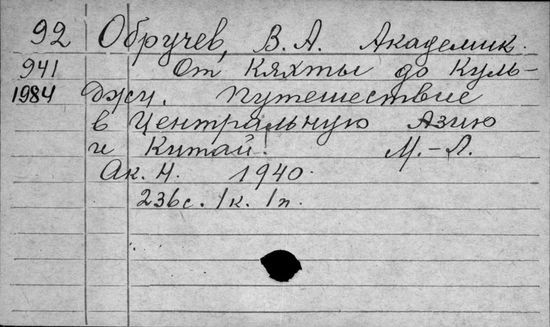 92 Обручев, В.А. Академик.
941 От Кяхты до Куль-
1984 джи. Путешествие
в Центральную Азию
и Китай. М.-Л.
Ак. Н. 1940.
236с. 1к. 1п.